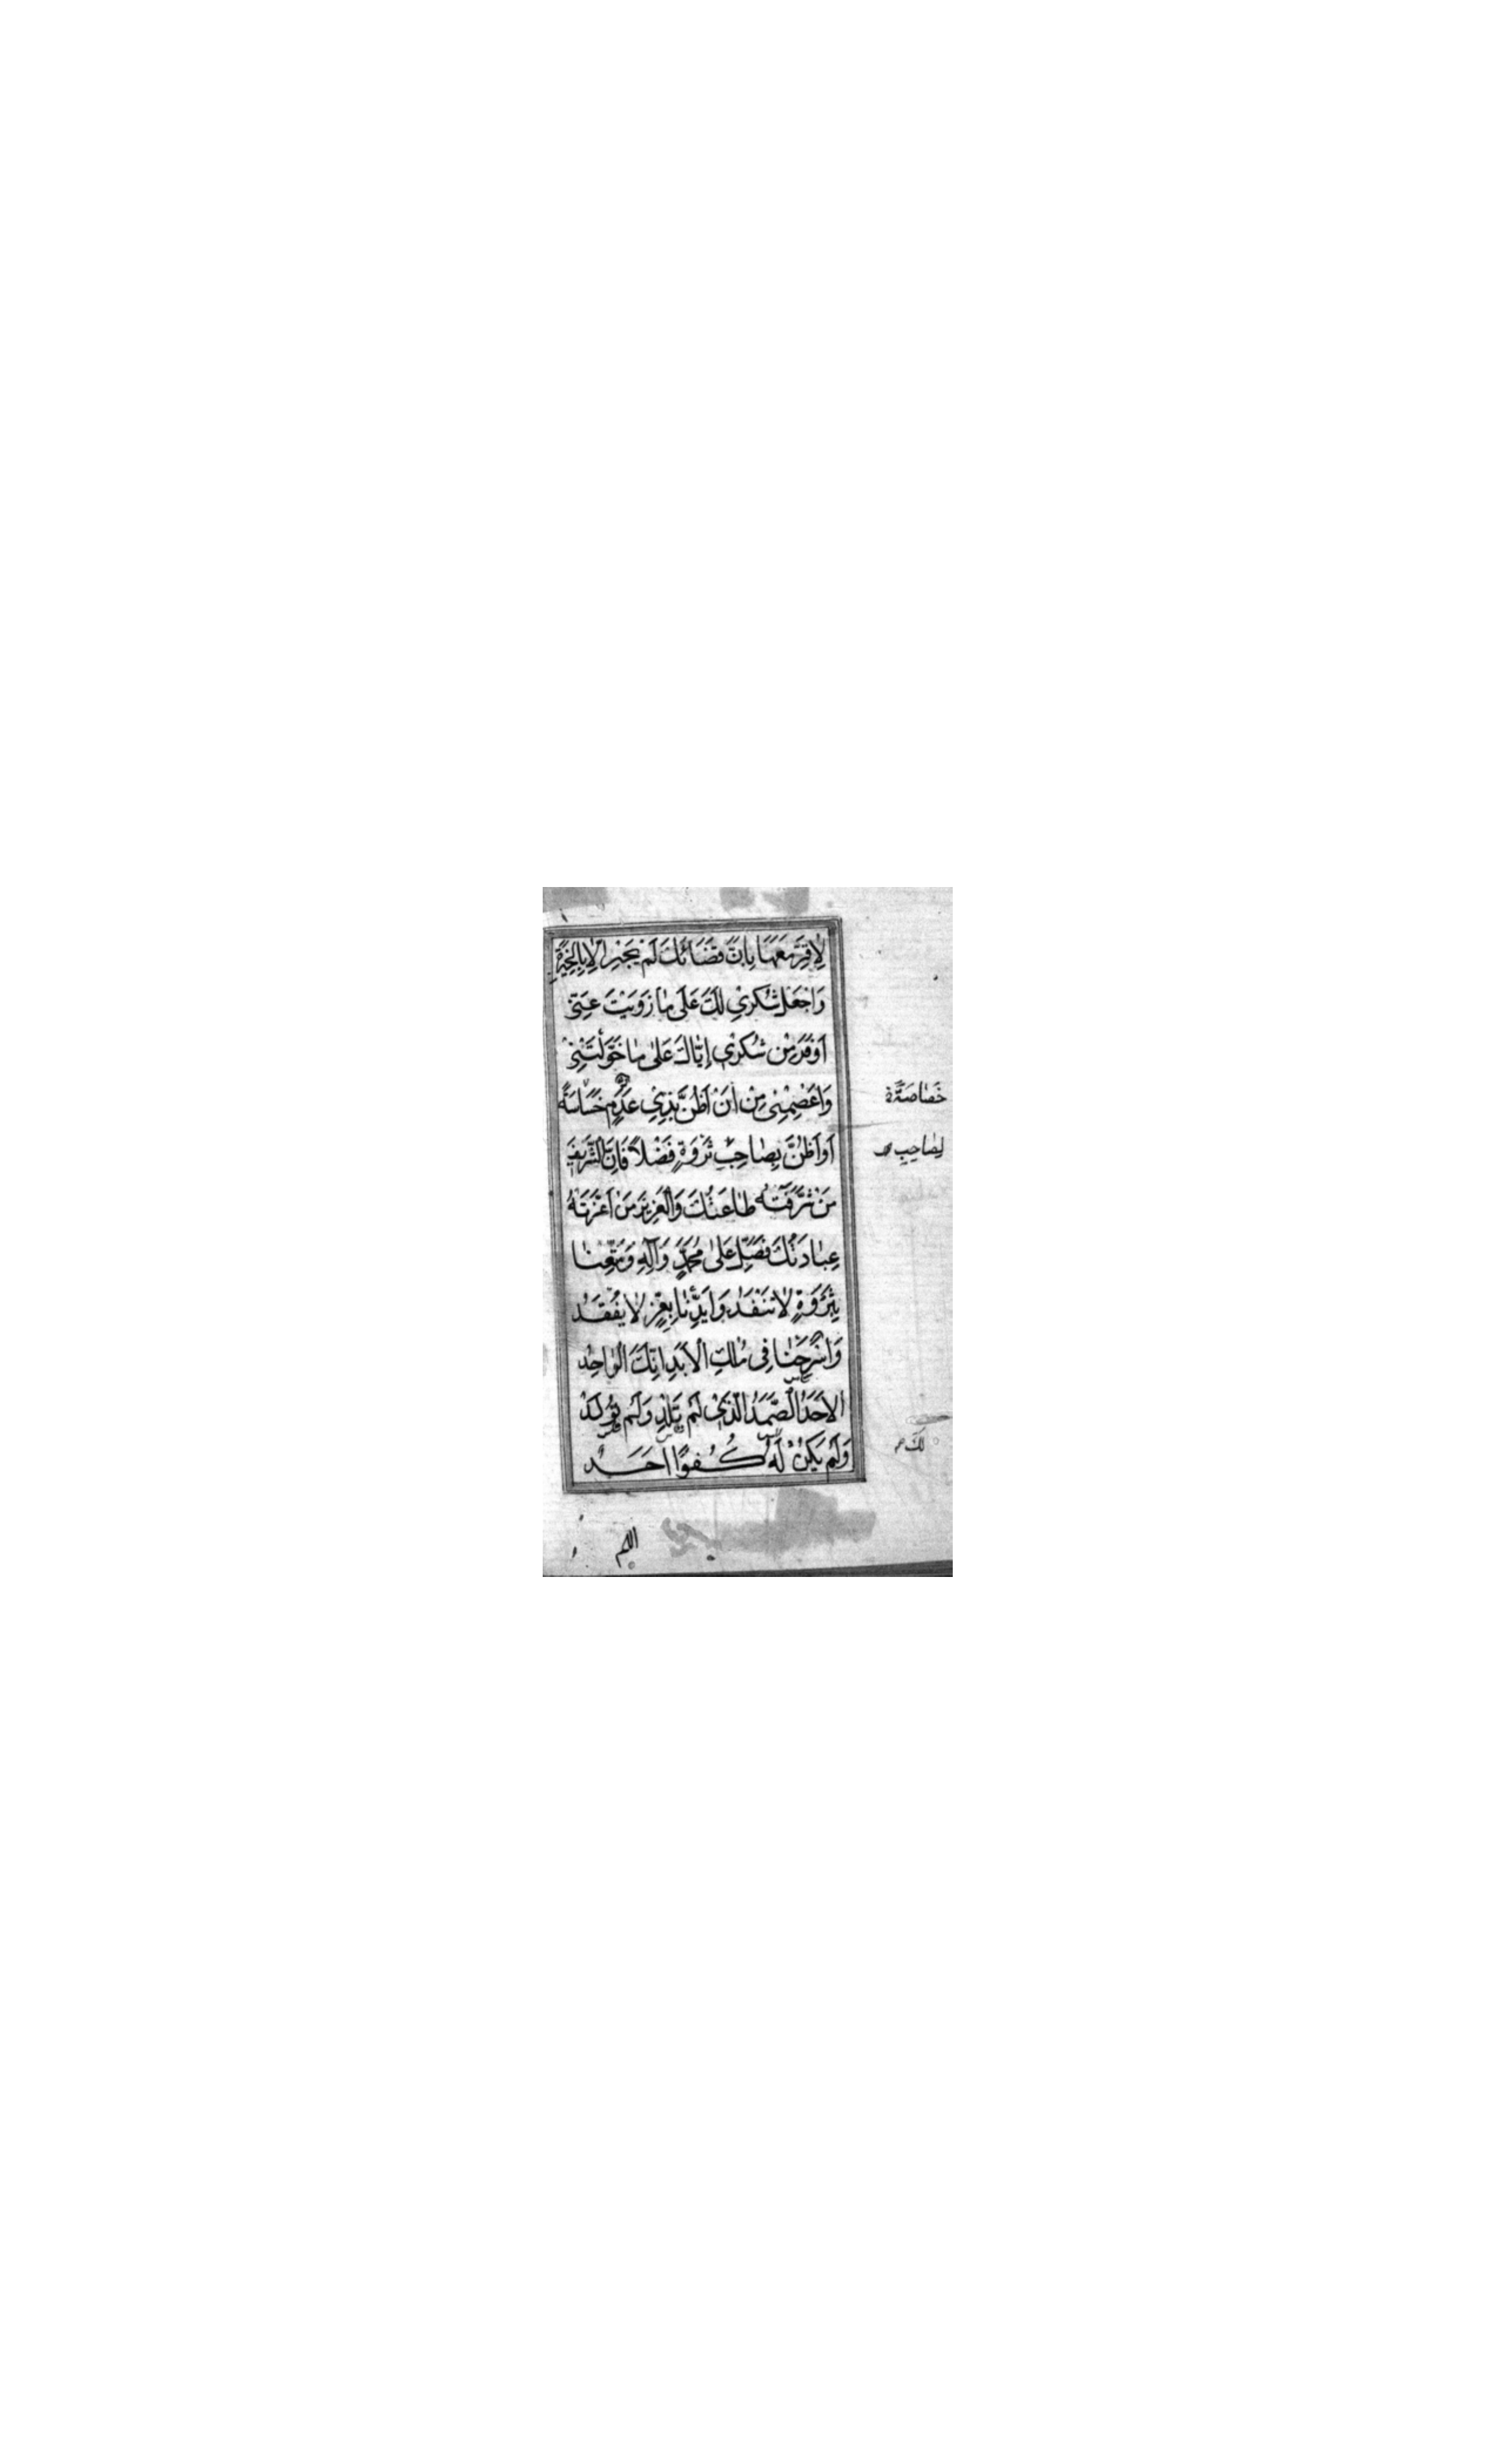 لِأُقِرَّ مَعَهَا بِأَنَّ قَضَائَكَ لَمْ يَجْرِ إِلَّا بِالْخِيَرَةِ
وَاجْعَلْ شُكْرِي لَكَ عَلَى مَا زَوَيْتَ عَنِّي
أَوْفَرَ مِنْ شُكْرِي إِيَّاكَ عَلَى مَا خَوَّلْتَنِي
وَاعْصِمْنِي مِنْ أَنْ أَظُنَّ بِذِي عَدَمٍ خَسَاسَةً
خَصَاصَةً
أَوْ أَظُنَّ بِصَاحِبِ ثَرْوَةٍ فَضْلًا فَإِنَّ الشَّرِيفَ
لِصَاحِبِ
مَنْ شَرَّفَتْهُ طَاعَتُكَ وَالْعَزِيزَ مَنْ أَعَزَّتْهُ
عِبَادَتُكَ فَصَلِّ عَلَى مُحَمَّدٍ وَآلِهِ وَمَتِّعْنَا
بِثَرْوَةٍ لَا تَنْفَدُ وَأَيِّدْنَا بِعِزٍّ لَا يُفْقَدُ
وَاسْرَحْنَا فِي مُلْكِ الْأَبَدِ إِنَّكَ الْوَاحِدُ
الْأَحَدُ الصَّمَدُ الَّذِي لَمْ يَلِدْ وَلَمْ يُولَدْ
وَلَمْ يَكُنْ لَهُ كُفُوًا أَحَدٌ
لَكَ
اللهم